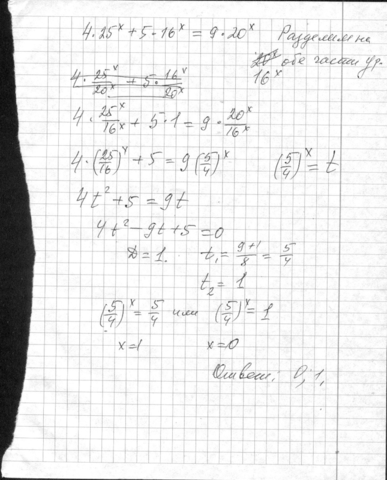 4·25ˣ + 5·16ˣ = 9·20ˣ Разделим на
20ˣ обе части ур.
16ˣ
4·25ˣ/20ˣ + 5·16ˣ/20ˣ
4·25ˣ/16ˣ + 5·1 = 9·20ˣ/16ˣ
4·(25/16)ˣ + 5 = 9(5/4)ˣ (5/4)ˣ = t
4t² + 5 = 9t
4t² - 9t + 5 = 0
D = 1. t₁ = 9+1/8 = 5/4
t₂ = 1
(5/4)ˣ = 5/4 или (5/4)ˣ = 1
x = 1 x = 0
Ответ: 0; 1,